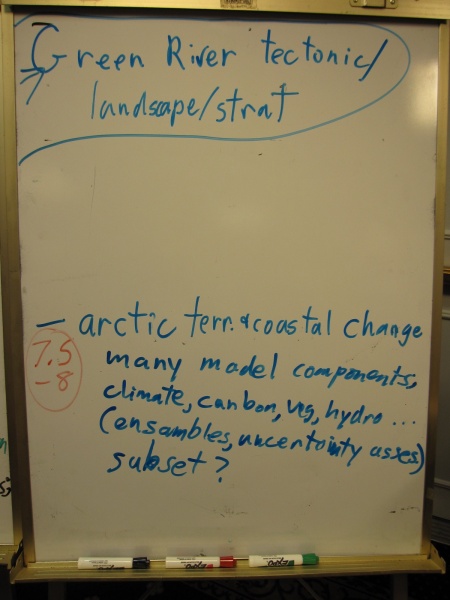 Green River tectonic/
landscape/strat
- arctic terr. & coastal change
7.5
-8
many model components,
climate, carbon, veg, hydro ...
(ensambles, uncertainty asses)
subset?
EXPO
EXPO